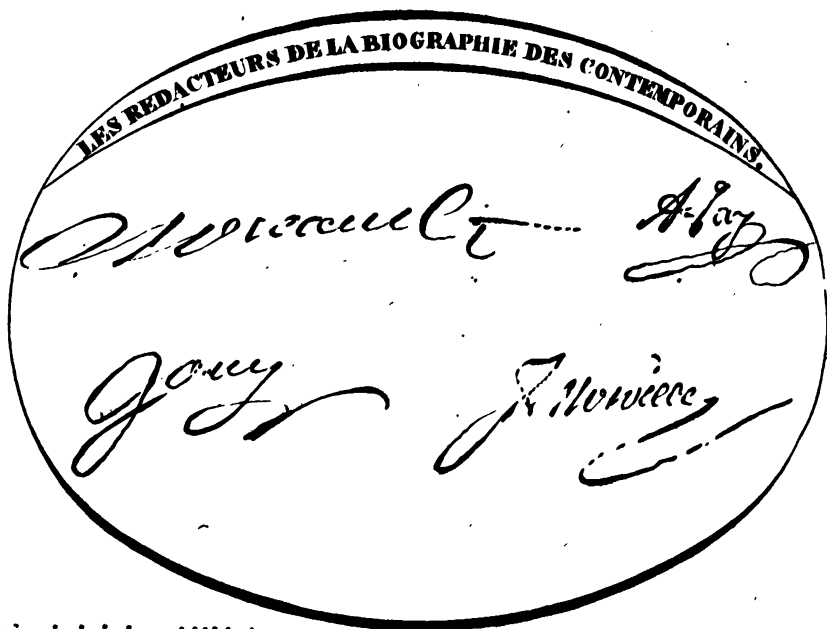 LES REDACTEURS DE LA BIOGRAPHIE DES CONTEMPORAINS,
A. Jay
Jouy
J. Norvins